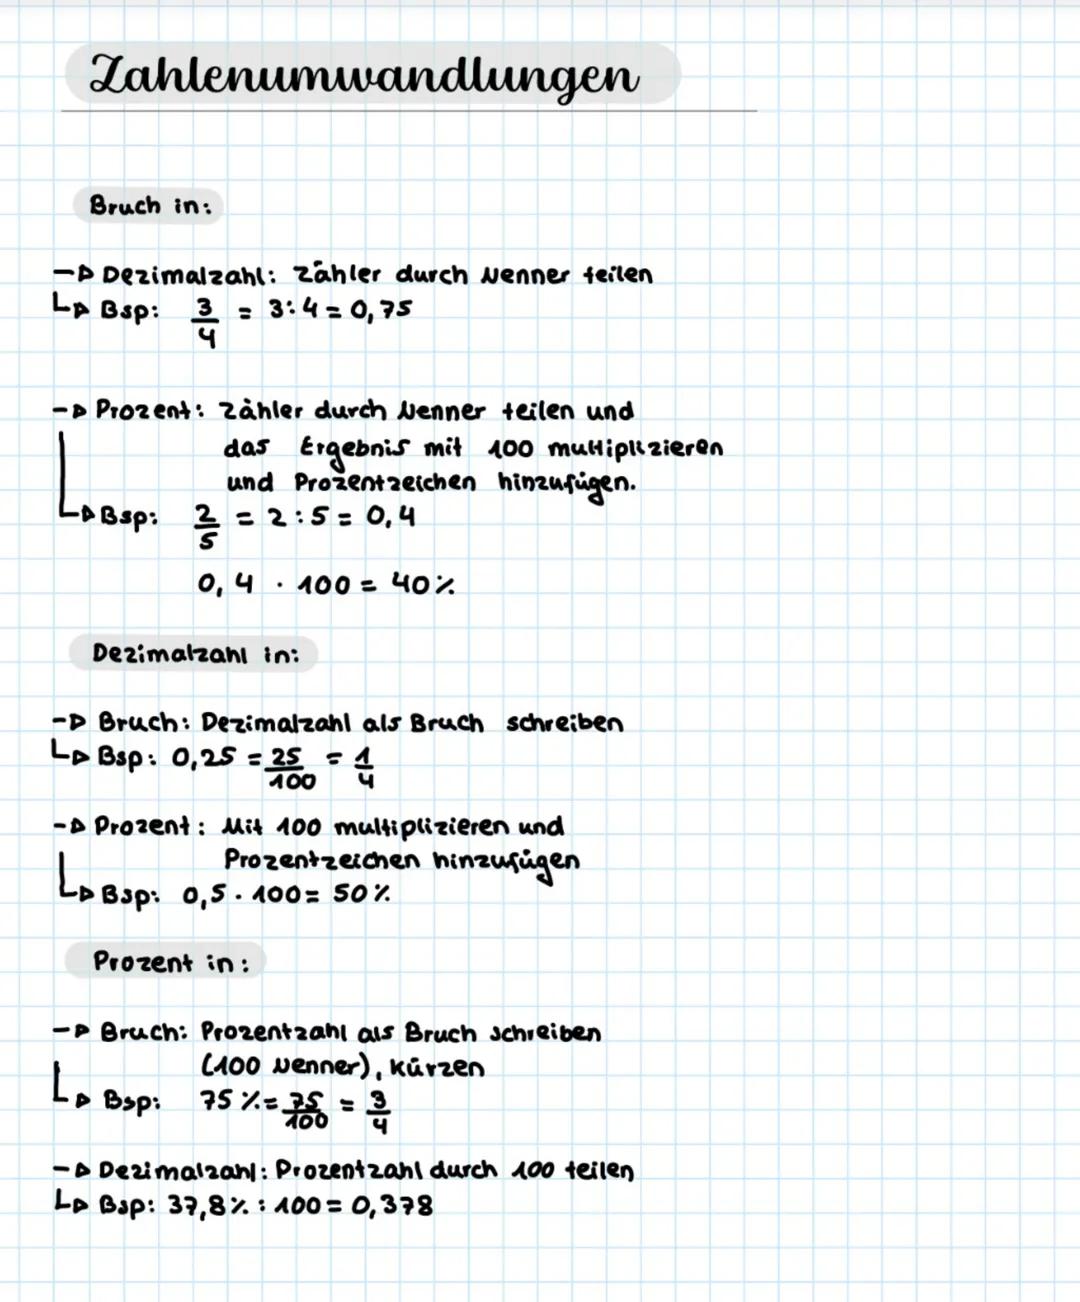 Zahlenumwandlungen
Bruch in:
→ Dezimalzahl: Zähler durch Nenner teilen
↳ Bsp: 3/4 = 3:4 = 0,75
→ Prozent: Zähler durch Nenner teilen und
das Ergebnis mit 100 multiplizieren
und Prozentzeichen hinzufügen.
↳ Bsp: 2/5 = 2:5 = 0,4
0,4 · 100 = 40%
Dezimalzahl in:
→ Bruch: Dezimalzahl als Bruch schreiben
↳ Bsp: 0,25 = 25/100 = 1/4
→ Prozent: Mit 100 multiplizieren und
Prozentzeichen hinzufügen
↳ Bsp: 0,5 · 100 = 50%
Prozent in:
→ Bruch: Prozentzahl als Bruch schreiben
(100 Nenner), kürzen
↳ Bsp: 75% = 75/100 = 3/4
→ Dezimalzahl: Prozentzahl durch 100 teilen
↳ Bsp: 37,8% : 100 = 0,378